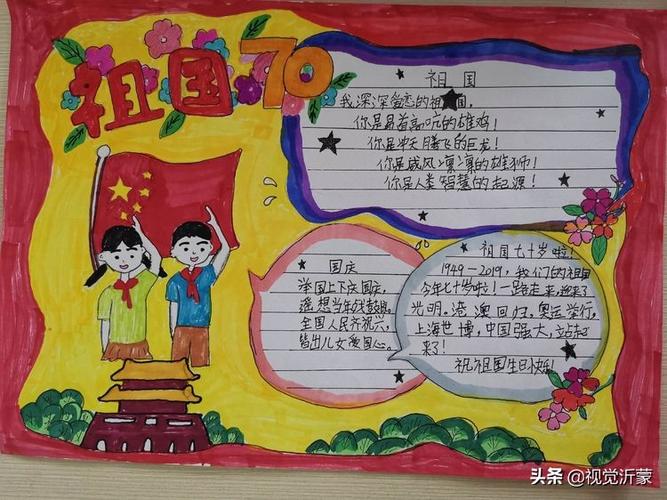 祖国 70
祖国
我深深眷恋的祖国,
你是昂首高吭的雄鸡!
你是冲天腾飞的巨龙!
你是威风凛凛的雄狮!
你是人类智慧的起源!
国庆
举国上下庆国庆,
遥想当年战鼓
全国人民齐祝兴,
皆出儿女爱国心。
祖国七十岁啦!
1949-2019,我们的祖国
今年七十岁啦!一路走来,迎来了
光明。港澳回归。奥运举行,
上海世博,中国强大,立起
来了!
祝祖国生日快乐!
头条 @视觉沂蒙